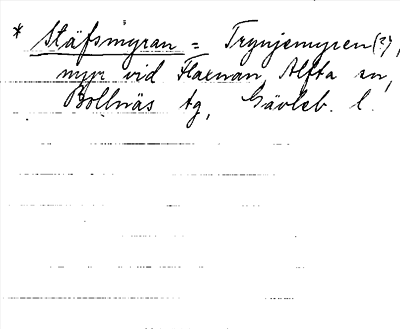 * Stäfsmyran = Trynjemyren (?),
myr vid Flaxnan, Alfta sn,
Bollnäs tg, Gävleb. l.